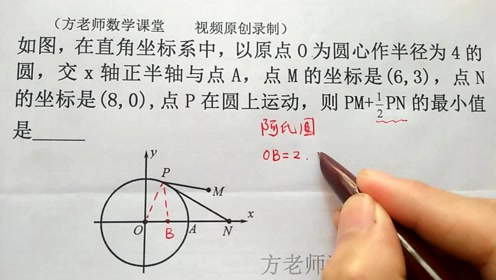 （方老师数学课堂 视频原创录制）
如图，在直角坐标系中，以原点 O 为圆心作半径为 4 的
圆，交 x 轴正半轴与点 A，点 M 的坐标是(6,3)，点 N
的坐标是(8,0)，点 P 在圆上运动，则 PM+½PN 的最小值
是____
阿氏圆
OB=2.
y
P
M
O
B
A
N
x
方老师